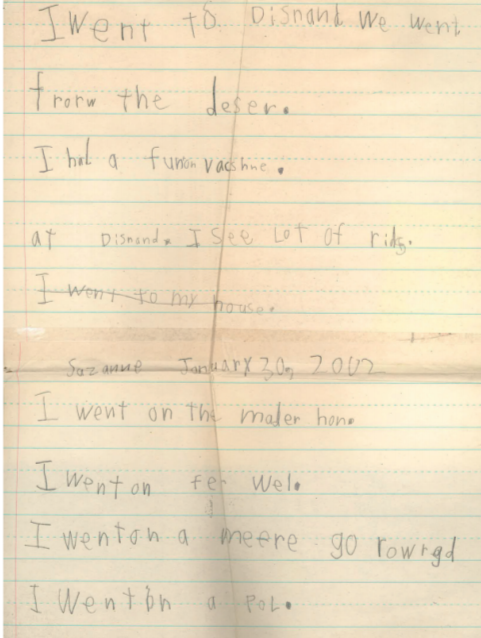 I went to Disnand We went
frorw the deser.
I hid a funon vacshne.
at Disnand. I see Lot of rids.
I went to my house.
Suzanne January 30, 2002
I went on the mater hon.
I went on fer wel.
I went on a meere go rowrgd
I went on a pol.